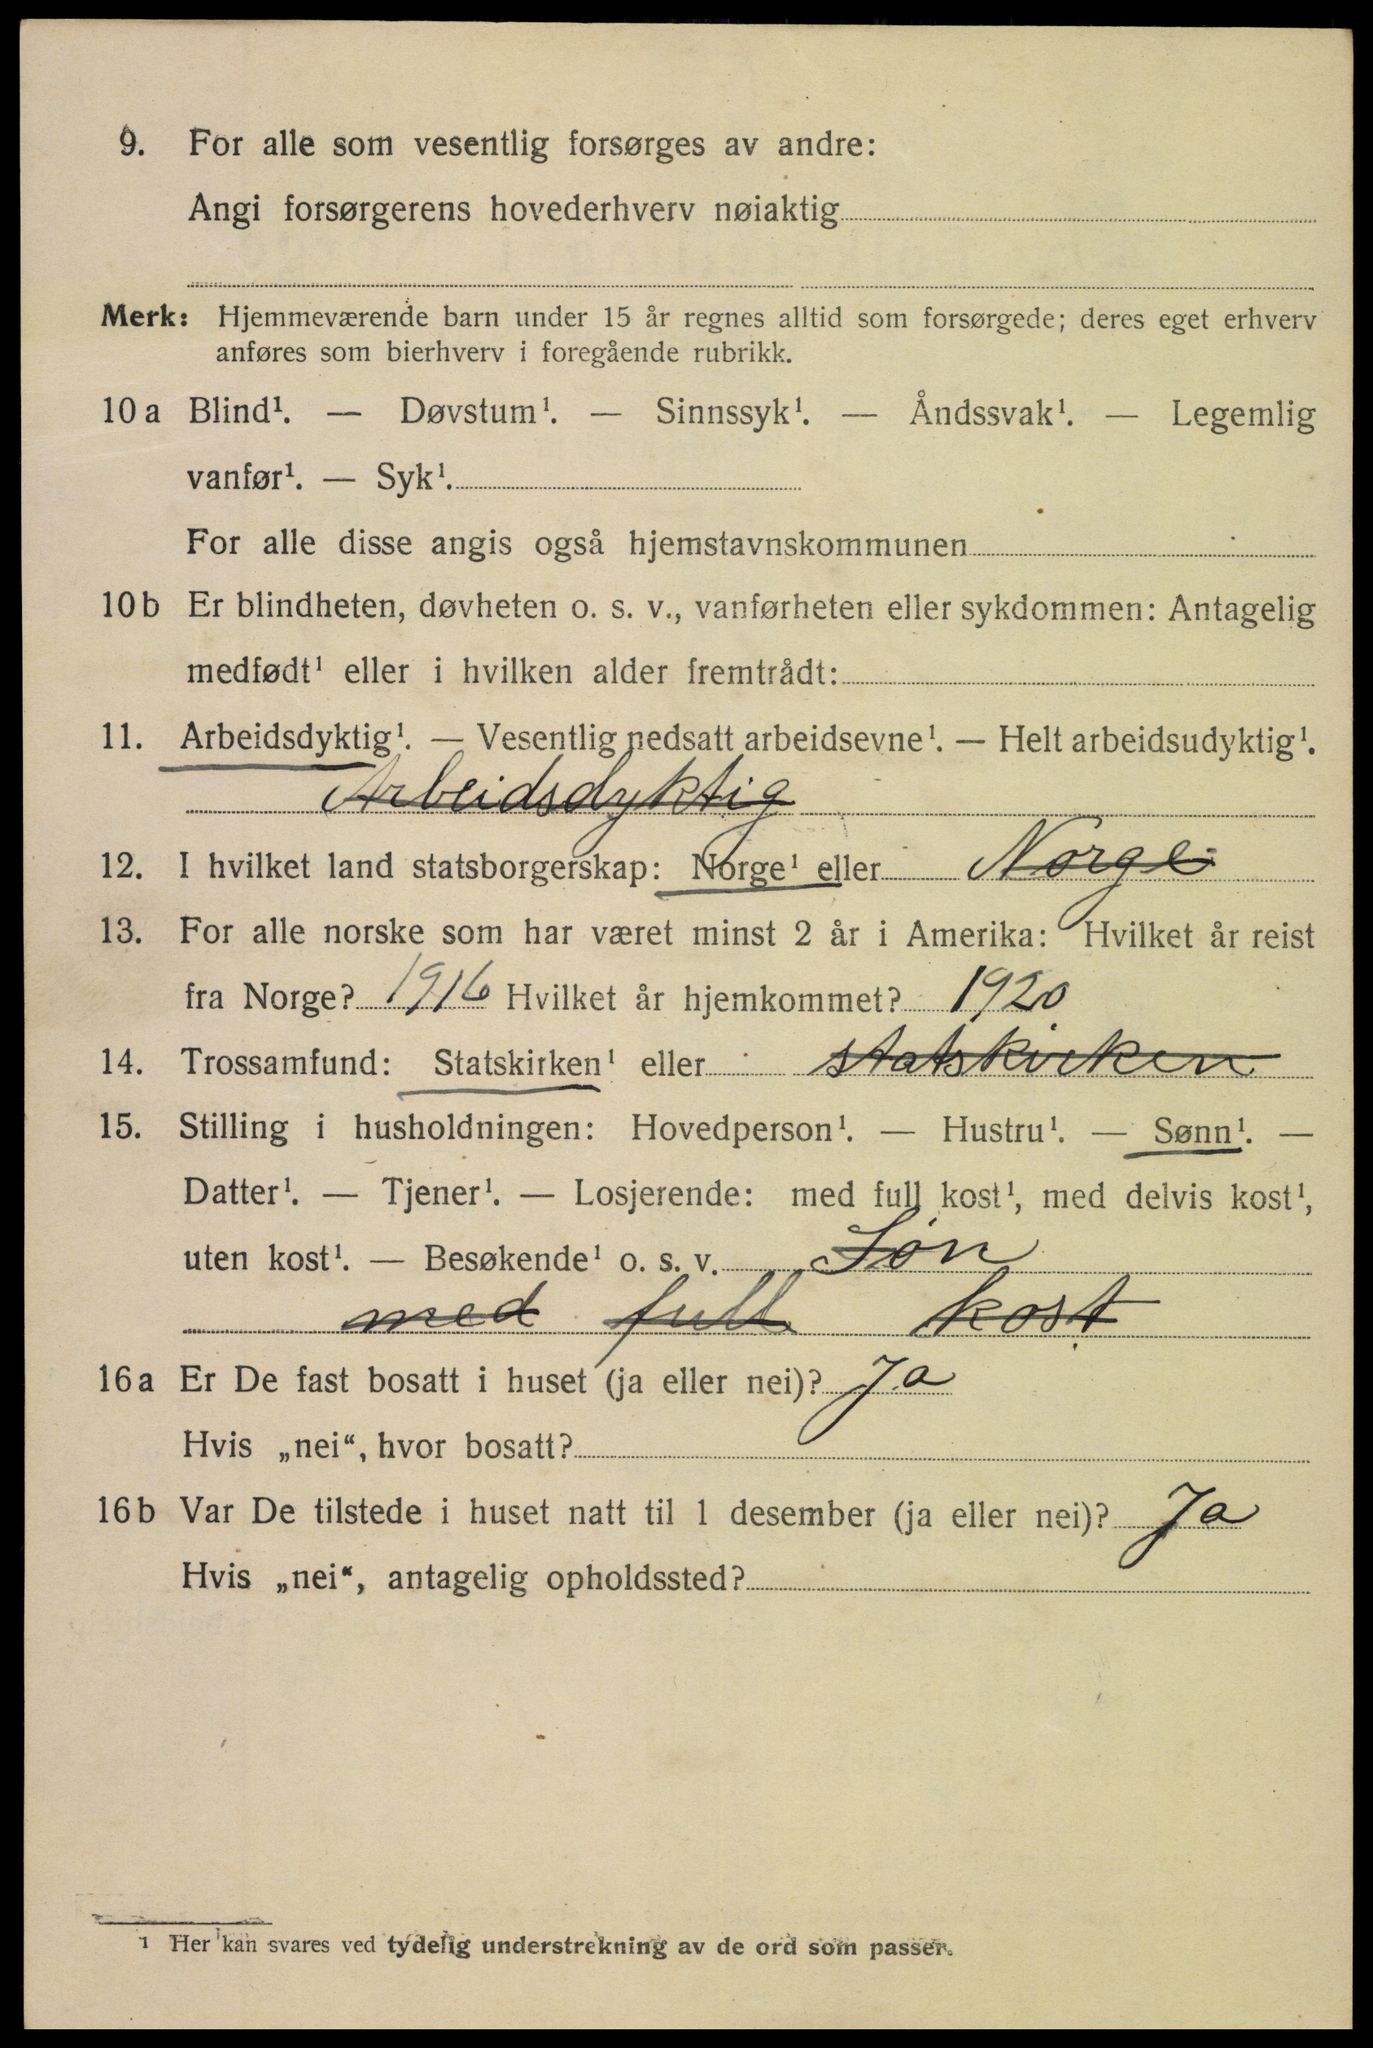 9. For alle som vesentlig forsørges av andre:
Angi forsørgerens hovederhverv nøiaktig
Merk: Hjemmeværende barn under 15 år regnes alltid som forsørgede; deres eget erhverv
anføres som bierhverv i foregående rubrikk.
10 a Blind¹. — Døvstum¹. — Sinnssyk¹. — Åndssvak¹. — Legemlig
vanfør¹. — Syk¹.
For alle disse angis også hjemstavnskommunen
10 b Er blindheten, døvheten o. s. v., vanførheten eller sykdommen: Antagelig
medfødt¹ eller i hvilken alder fremtrådt:
11. Arbeidsdyktig¹. — Vesentlig nedsatt arbeidsevne¹. — Helt arbeidsudyktig¹.
Arbeidsdyktig
12. I hvilket land statsborgerskap: Norge¹ eller Norge
13. For alle norske som har været minst 2 år i Amerika: Hvilket år reist
fra Norge? 1916 Hvilket år hjemkommet? 1920
14. Trossamfund: Statskirken¹ eller statskirken
15. Stilling i husholdningen: Hovedperson¹. — Hustru¹. — Sønn¹. —
Datter¹. — Tjener¹. — Losjerende: med full kost¹, med delvis kost¹,
uten kost¹. — Besøkende¹ o. s. v. Søn
med full kost
16 a Er De fast bosatt i huset (ja eller nei)? Ja
Hvis „nei“, hvor bosatt?
16 b Var De tilstede i huset natt til 1 desember (ja eller nei)? Ja
Hvis „nei“, antagelig opholdssted?
¹ Her kan svares ved tydelig understrekning av de ord som passer.